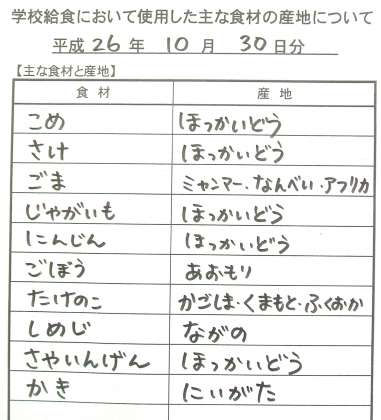 学校給食において使用した主な食材の産地について
平成 26 年 10 月 30 日分
【主な食材と産地】
食材 産地
こめ ほっかいどう
さけ ほっかいどう
ごま ミャンマー・なんべい・アフリカ
じゃがいも ほっかいどう
にんじん ほっかいどう
ごぼう あおもり
たけのこ かごしま・くまもと・ふくおか
しめじ ながの
さやいんげん ほっかいどう
かき にいがた